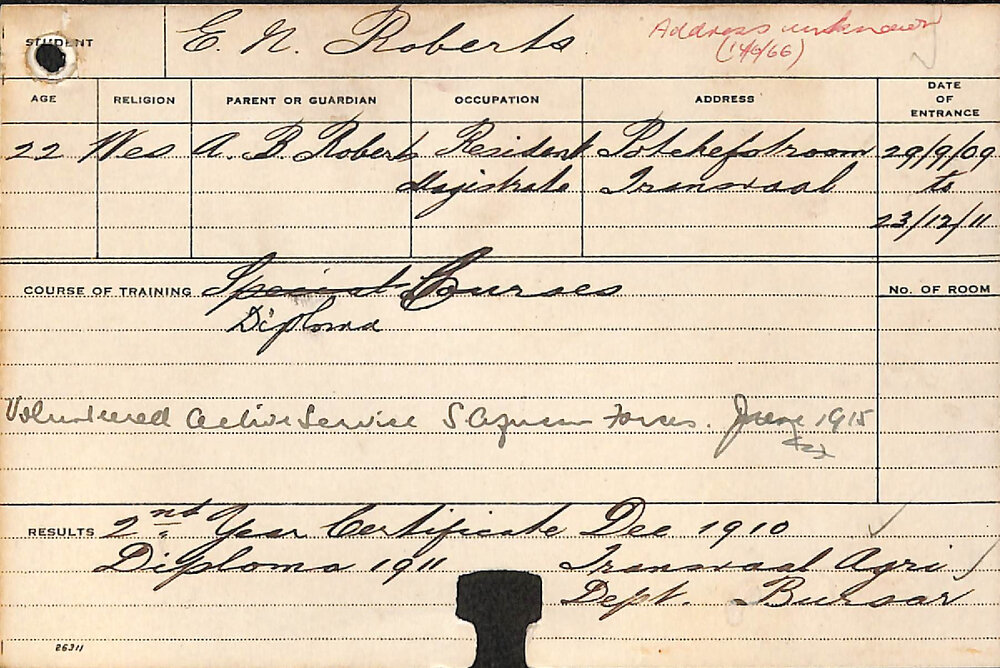 STUDENT E. N. Roberts Address unknown
(14/6/66)
AGE RELIGION PARENT OR GUARDIAN OCCUPATION ADDRESS DATE OF ENTRANCE
22 Wes A. B. Roberts Resident Potchefstroom 29/9/09
Magistrate Transvaal to
23/12/11
COURSE OF TRAINING Special Courses No. OF ROOM
Diploma
Volunteered active service S African Forces. June 1915
RESULTS 2nd. Year Certificate Dec 1910
Diploma 1911 Transvaal Agri
Dept. Bursar
26311